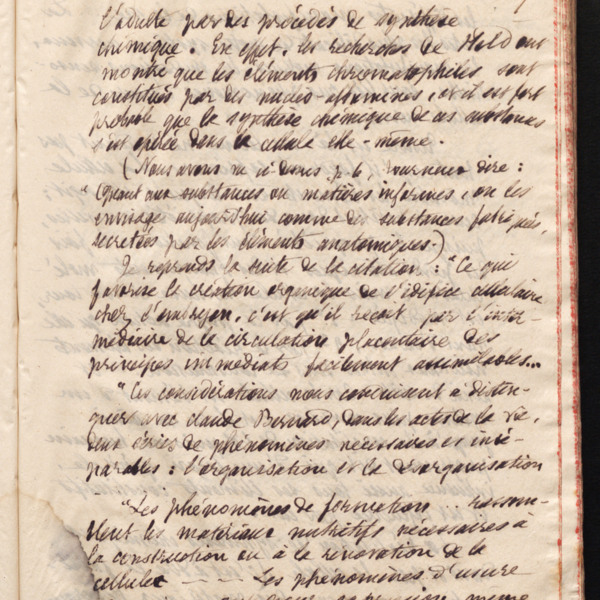 l'adulte par des procédés de synthèse
chimique. En effet, les recherches de Held ont
montré que les éléments chromatophiles sont
constitués par des nucléo-albumines, or il est fort
probable que la synthèse chimique de ces substances
s'est opérée dans la cellule elle-même.
(Nous avons vu ci-dessus, p. 6, Tourneux dire :
"Quant aux substances ou matières informes, on les
envisage aujourd'hui comme des substances fabriquées,
secrétées par les éléments anatomiques.)
Je reprends la suite de la citation : "Ce qui
favorise la création organique de l'édifice cellulaire
chez l'embryon, c'est qu'il reçoit par l'inter-
médiaire de la circulation placentaire des
principes immédiats facilement assimilables...
"Ces considérations nous conduisent à distin-
guer avec Claude Bernard, dans les actes de la vie,
deux séries de phénomènes nécessaires et insé-
parables : l'organisation et la désorganisation
"Les phénomènes de formation .. rassem-
blent les matériaux nutritifs nécessaires à
la construction ou à la rénovation de la
cellule - - - Les phénomènes d'usure
même